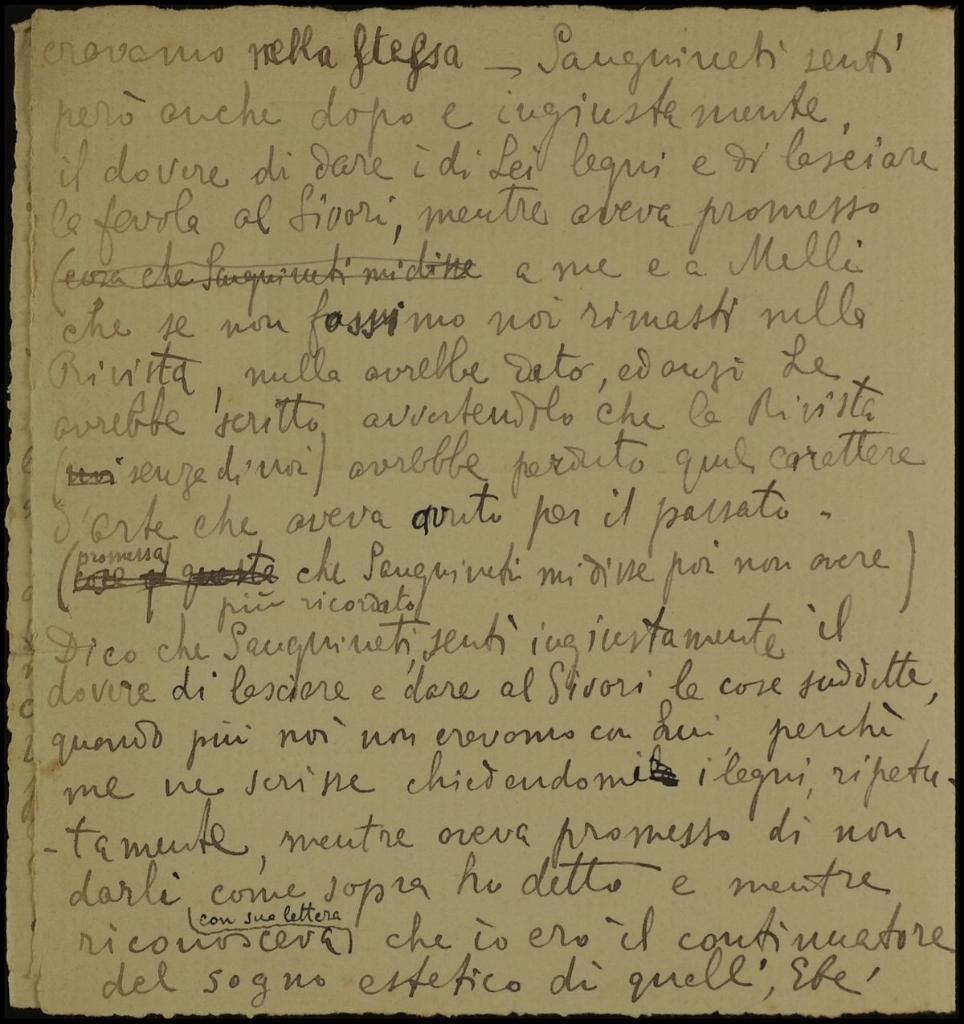 eravamo nella stessa — Sanguineti sentì
però anche dopo e ingiustamente,
il dovere di dare i di Lei legni e di lasciare
la favola al Sivori, mentre aveva promesso
(cosa che Sanguineti mi disse a me e a Melli
che se non fossimo noi rimasti nella
Rivista, nulla avrebbe dato, ed anzi Le
avrebbe scritto avvertendolo che la Rivista
(noi senza di noi) avrebbe perduto quel carattere
d'arte che aveva avuto per il passato -
(promessa
cosa questa che Sanguineti mi disse poi non avere)
più ricordato
Dico che Sanguineti, sentì ingiustamente il
dovere di lasciare e dare al Sivori le cose suddette,
quando più noi non eravamo con Lui, perchè
me ne scrisse chiedendomi i legni, ripetu-
-tamente, mentre aveva promesso di non
darli come sopra ho detto e mentre
(con sua lettera
riconosceva) che io ero il continuatore
del sogno estetico di quell', Ebe'